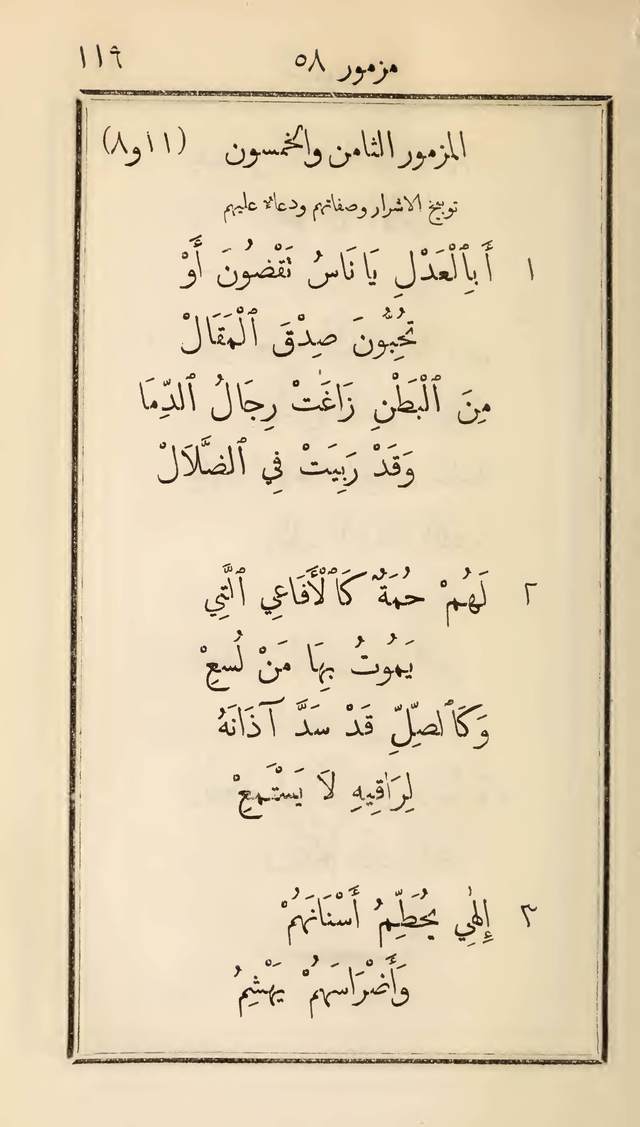 مزمور ٥٨ ١١٩
المزمور الثامن والخمسون (١١و٨)
توبيخ الاشرار وصفاتهم ودعاء عليهم
١ أَبِٱلْعَدْلِ يَا نَاسُ تَقْضُونَ أَوْ
تُحِبُّونَ صِدْقَ ٱلْمَقَالْ
مِنَ ٱلْبَطْنِ زَاغَتْ رِجَالُ ٱلدِّمَا
وَقَدْ رَبِيَتْ فِي ٱلضَّلَالْ
٢ لَهُمْ حُمَةٌ كَٱلْأَفَاعِي ٱلَّتِي
يَمُوتُ بِهَا مَنْ لُسِعْ
وَكَٱلصِّلِّ قَدْ سَدَّ آذَانَهُ
لِرَاقِيهِ لَا يَسْتَمِعْ
٣ إِلٰهِي يُحَطِّمُ أَسْنَانَهُمْ
وَأَضْرَاسَهُمْ يَهْشِمُ